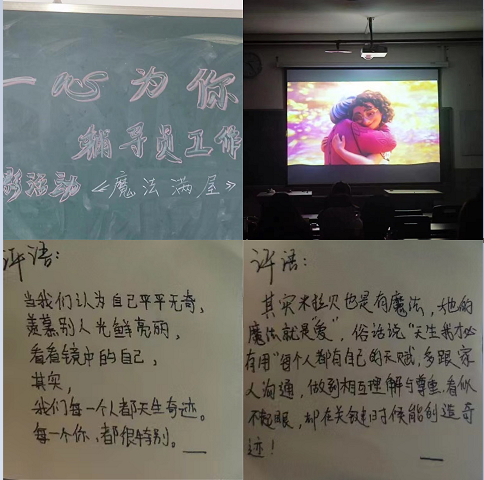 一心为你
辅导员工作
影活动《魔法满屋》
评语：
当我们认为自己平平无奇，
羡慕别人光鲜亮丽，
看看镜中的自己，
其实，
我们每一个人都天生奇迹。
每一个你、都很特别。
评语：
其实米拉贝也是有魔法，她的
魔法就是“爱”，俗话说“天生我才必
有用”每个人都有自己的天赋，多跟家
人沟通，做到相互理解与尊重，看似
不起眼，却在关键时候能创造奇
迹！